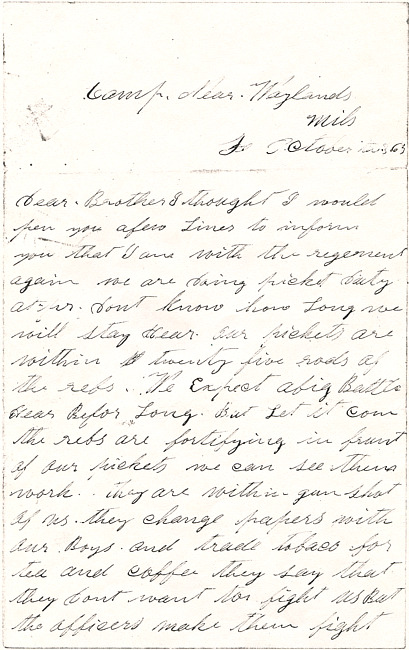 Camp. Near. Weylands
Mils
October 63
Dear. Brother I thought I would
pen you a few Lines to inform
you that I am with the regement
again we are doing picket duty
dont know how Long we
will stay hear. our pickets are
within twenty five rods of
the rebs. We Expect a big Battle
hear Befor Long. But Let it com
the rebs are fortifying in frunt
of our pickets we can see them
work. they are within gun shot
of us. they change papers with
our Boys. and trade tobaco for
tea and coffee they say that
they dont want to fight us But
the officers make them fight